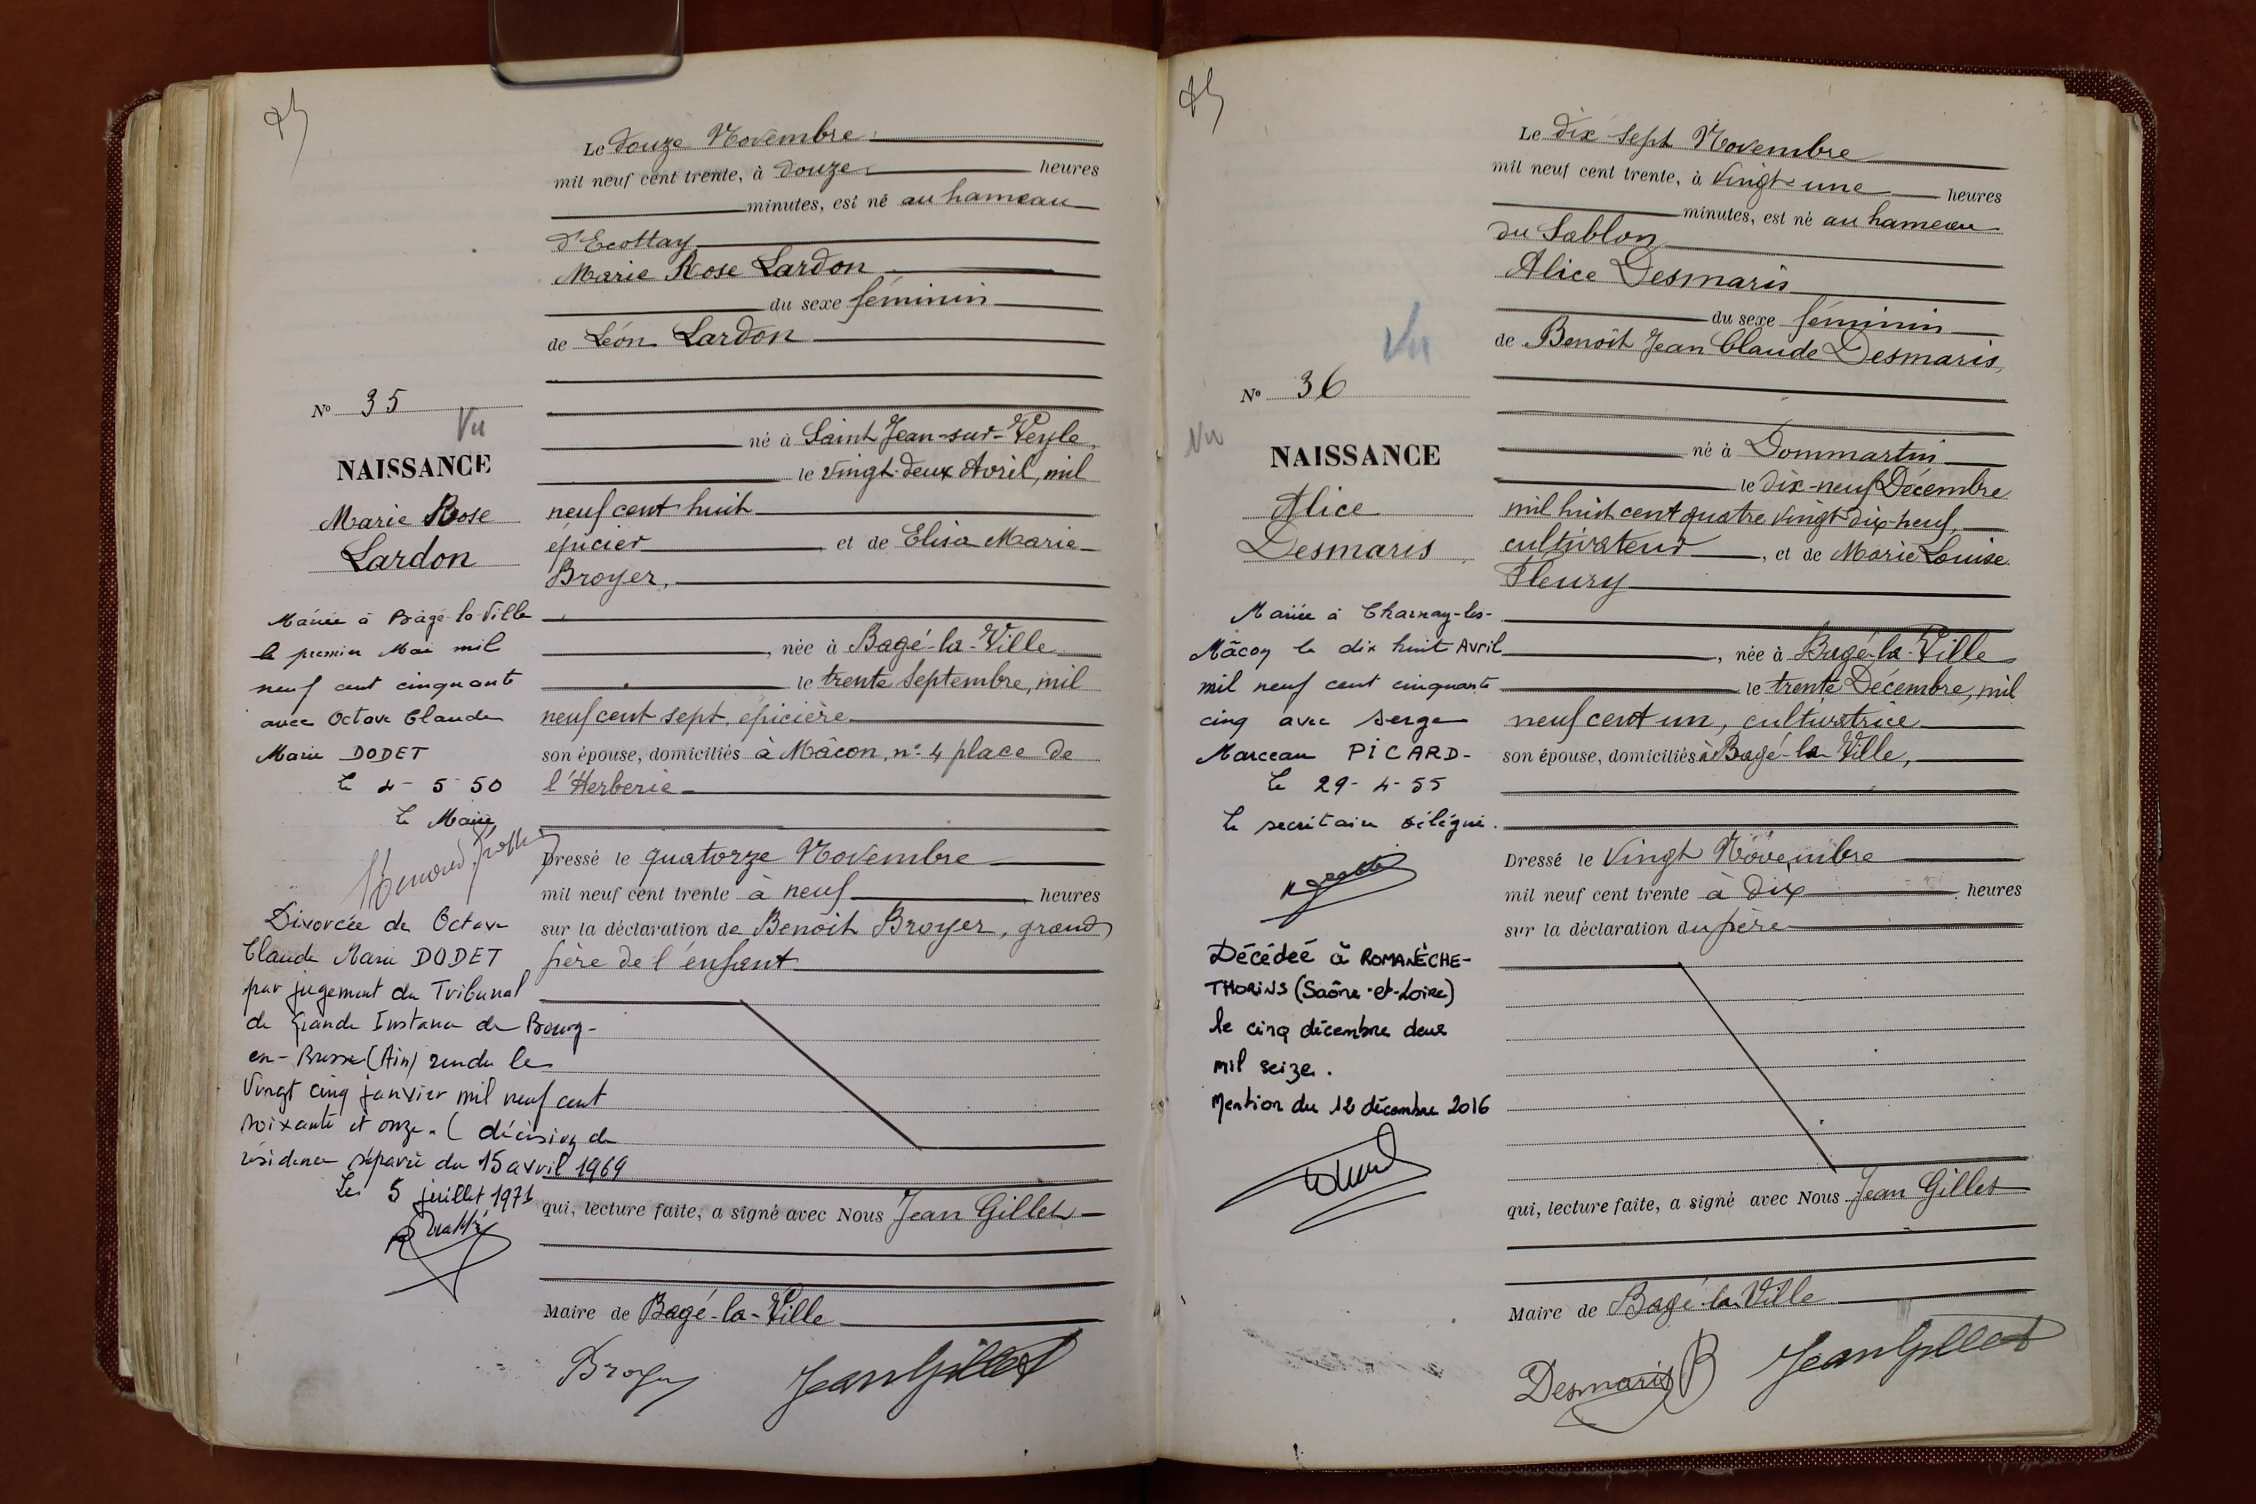 Le douze Novembre
mil neuf cent trente, à douze heures
minutes, est né au hameau
d'Ecottay
Marie Rose Lardon
du sexe féminin
de Léon Lardon
né à Saint Jean-sur-Veyle
le vingt-deux Avril, mil
neuf cent huit
épicier et de Elisa Marie
Broyer,
, née à Bagé-la-Ville
le trente Septembre, mil
neuf cent sept, épicière
son épouse, domiciliés à Mâcon, n° 4 place de
l'Herberie
Dressé le quatorze Novembre
mil neuf cent trente à neuf heures
sur la déclaration de Benoît Broyer, grand
père de l'enfant
qui, lecture faite, a signé avec Nous Jean Gillet
Maire de Bagé-la-Ville
Broyer Jean Gillet
N° 35
Vu
NAISSANCE
Marie Rose
Lardon
Mariée à Bagé-la-Ville
le premier Mai mil
neuf cent cinquante
avec Octave Claude
Marie DODET
Le 4-5-50
Le Maire
Divorcée de Octave
Claude Marie DODET
par jugement du Tribunal
de Grande Instance de Bourg-
en-Bresse (Ain) rendu le
Vingt cinq janvier mil neuf cent
soixante et onze. (décision de
résidence séparée du 15 avril 1969
Le 5 juillet 1971
Le dix-sept Novembre
mil neuf cent trente, à vingt-une heures
minutes, est né au hameau
du Sablon
Alice Desmaris
du sexe féminin
de Benoît Jean Claude Desmaris,
né à Dommartin
le dix-neuf Décembre
mil huit cent quatre vingt dix-neuf,
cultivateur, et de Marie Louise
Fleury
, née à Bagé-la-Ville
le trente Décembre, mil
neuf cent un, cultivatrice
son épouse, domiciliés à Bagé-la-Ville,
Dressé le vingt Novembre
mil neuf cent trente à dix heures
sur la déclaration du père
qui, lecture faite, a signé avec Nous Jean Gillet
Maire de Bagé-la-Ville
Desmaris B Jean Gillet
Vu
N° 36
Vu
NAISSANCE
Alice
Desmaris
Mariée à Charnay-les-
Mâcon le dix huit Avril
mil neuf cent cinquante
cinq avec Serge
Marceau PICARD-
Le 29-4-55
Le secrétaire délégué.
Décédeé à ROMANÈCHE-
THORINS (Saône-et-Loire)
le cinq décembre deux
mil seize.
Mention du 12 décembre 2016